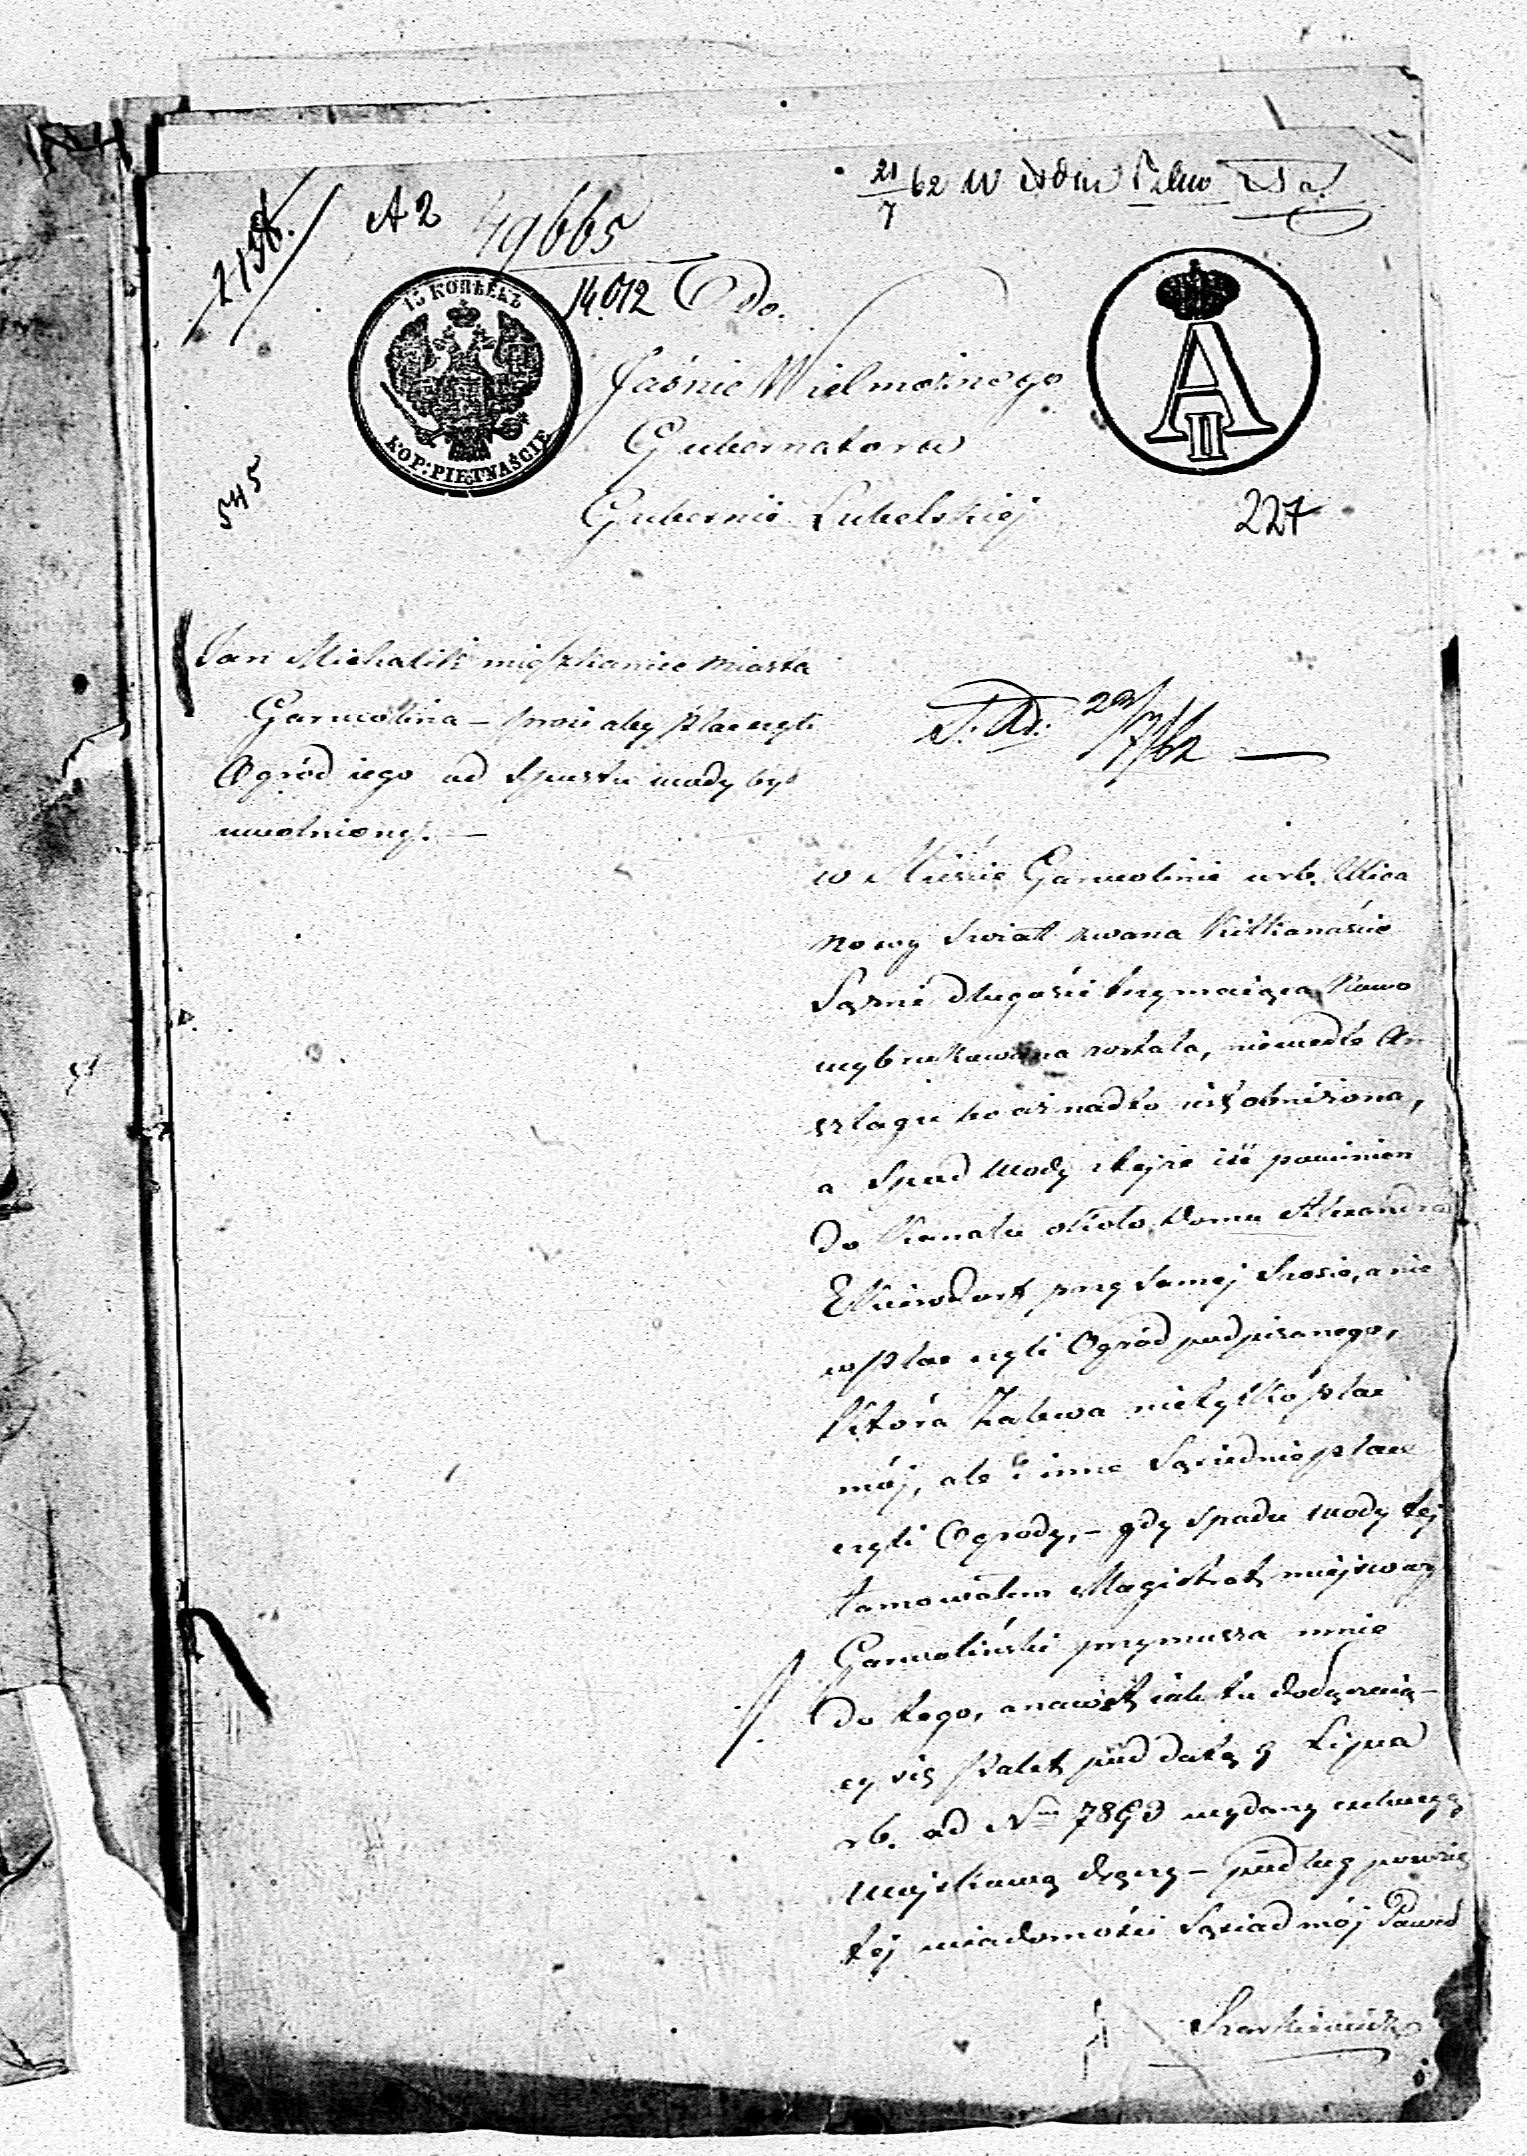 21/7 62 W
2158.
A2
49665
14.012
Do.
15 КОПѢЕКЪ
KOP: PIĘTNAŚCIE
A II
Jaśnie Wielmożnego
Gubernatora
Gubernie Lubelskiej
545
227
Jan Michalik mieszkaniec miasta
Garwolina – prosi aby plac czyli
Ogród iego od Spustu wody był
uwolniony. –
22/7/62 —
w Mieście Garwolinie w rb. Ulica
nowy Swiat zwana Kilkanaście
Sążni długości trzymaiąca nowo
wybrukowana została, niewedle An
szlagu bo aż nadto iest obniżona,
a Spad wody tejże iść powinien
do Kanału około Domu Alexandra
przy samej Szosie, a nie
w plac czyli Ogród podpisanego,
Która Zalewa nietylko plac
mój, ale i inne Sąsiednie place
czyli Ogrody, – gdy spadu wody tej
tamowałem Magistrat miejscowy
Garwoliński przymusza mnie
do tego, a nawet iak tu dołączaią–
cy się pod datą 9 Lipca
rb. ad Nrm 7893 wydany
wojskową – podług powzię
tej wiadomości Sąsiad mój Paweł